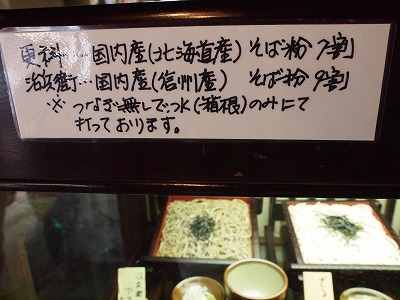 更科…国内産(北海道産) そば粉7割
治兵衛…国内産(信州産) そば粉9割
※つなぎ無しで、水(箱根)のみにて
打っております。